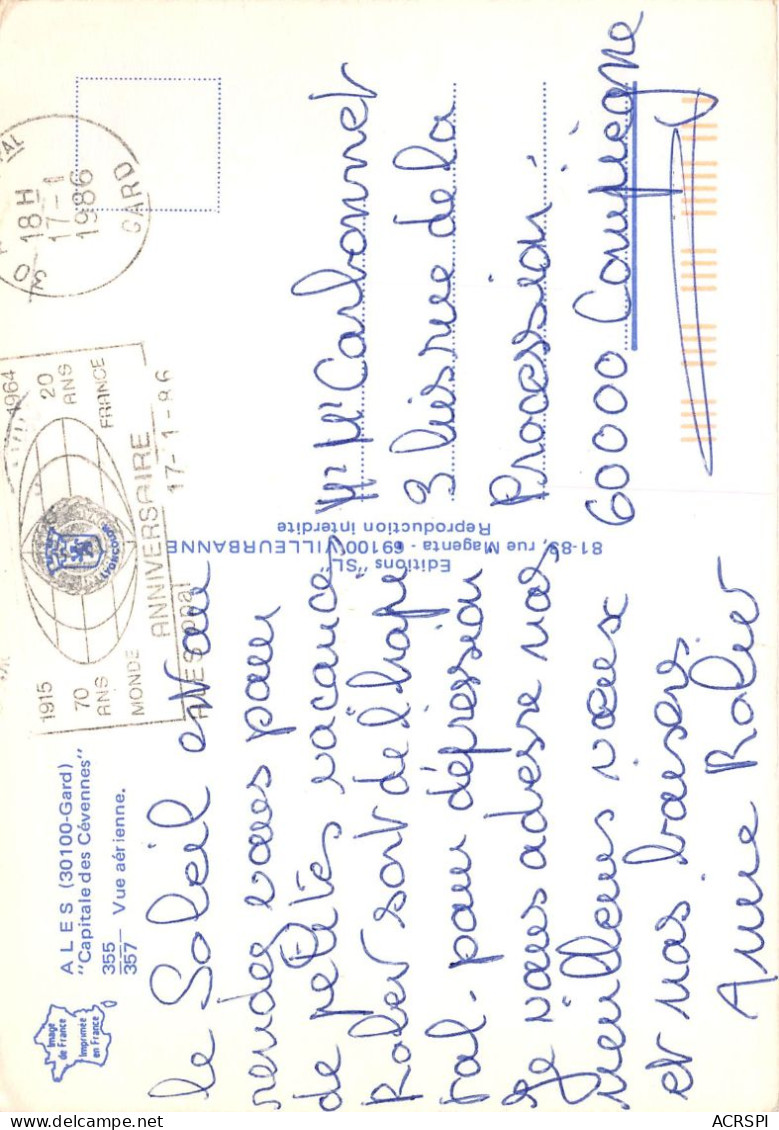 ALES (30100-Gard)
"Capitale des Cévennes"
355
357 — Vue aérienne.
Image de France
Imprimée en France
le Soleil est au
rendez vous pour
de petites vacances
Rober sort de l'hopi
tal. pour dépression
Je vous adresse nos
meilleurs voeux
et nos baisers
Anne Rober
Editions "SL"
81-83, rue Magenta - 69100 VILLEURBANNE
Reproduction interdite
18H
17-1
1986
GARD
1915
1964
70 ANS
20 ANS
MONDE
FRANCE
ANNIVERSAIRE
17-1-86
Mr Me Carbonnet
3 bis rue de la
Procession.
60000 Compiègne
ACRSPI